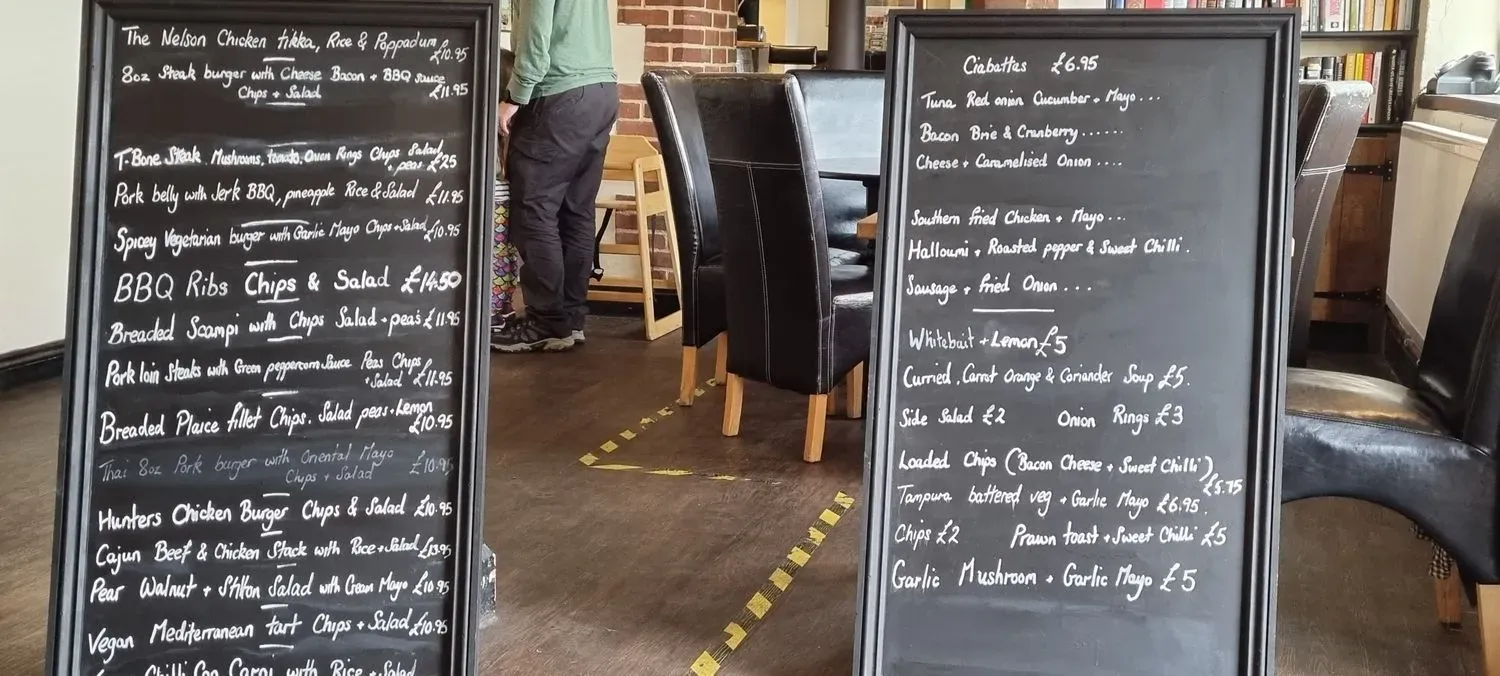 The Nelson Chicken tikka, Rice & Poppadum £10.95
8oz Steak burger with Cheese Bacon + BBQ Sauce
Chips + Salad £11.95
T-Bone Steak. Mushrooms, tomato, Onion Rings Chips Salad
+ peas £25
Pork belly with Jerk BBQ, pineapple Rice & Salad £11.95
Spicey Vegetarian burger with Garlic Mayo Chips + Salad £10.95
BBQ Ribs Chips & Salad £14.50
Breaded Scampi with Chips Salad + peas £11.95
Pork loin Steaks with Green peppercorn Sauce Peas Chips
+ Salad £11.95
Breaded Plaice fillet Chips. Salad peas + Lemon
£10.95
Thai 8oz Pork burger with Oriental Mayo
Chips + Salad £10.95
Hunters Chicken Burger Chips & Salad £10.95
Cajun Beef & Chicken Stack with Rice + Salad £13.95
Pear Walnut + Stilton Salad with Cream Mayo £10.95
Vegan Mediterranean tart Chips + Salad £10.95
Chilli Con Carni with Rice + Salad
Ciabattas £6.95
Tuna Red onion Cucumber + Mayo...
Bacon Brie & Cranberry......
Cheese + Caramelised Onion....
Southern fried Chicken + Mayo...
Halloumi + Roasted pepper & Sweet Chilli.
Sausage + fried Onion...
Whitebait + Lemon £5
Curried, Carrot Orange & Coriander Soup £5.
Side Salad £2 Onion Rings £3
Loaded Chips (Bacon Cheese + Sweet Chilli)
£5.75
Tampura battered veg + Garlic Mayo £6.95.
Chips £2 Prawn toast + Sweet Chilli £5
Garlic Mushroom + Garlic Mayo £5